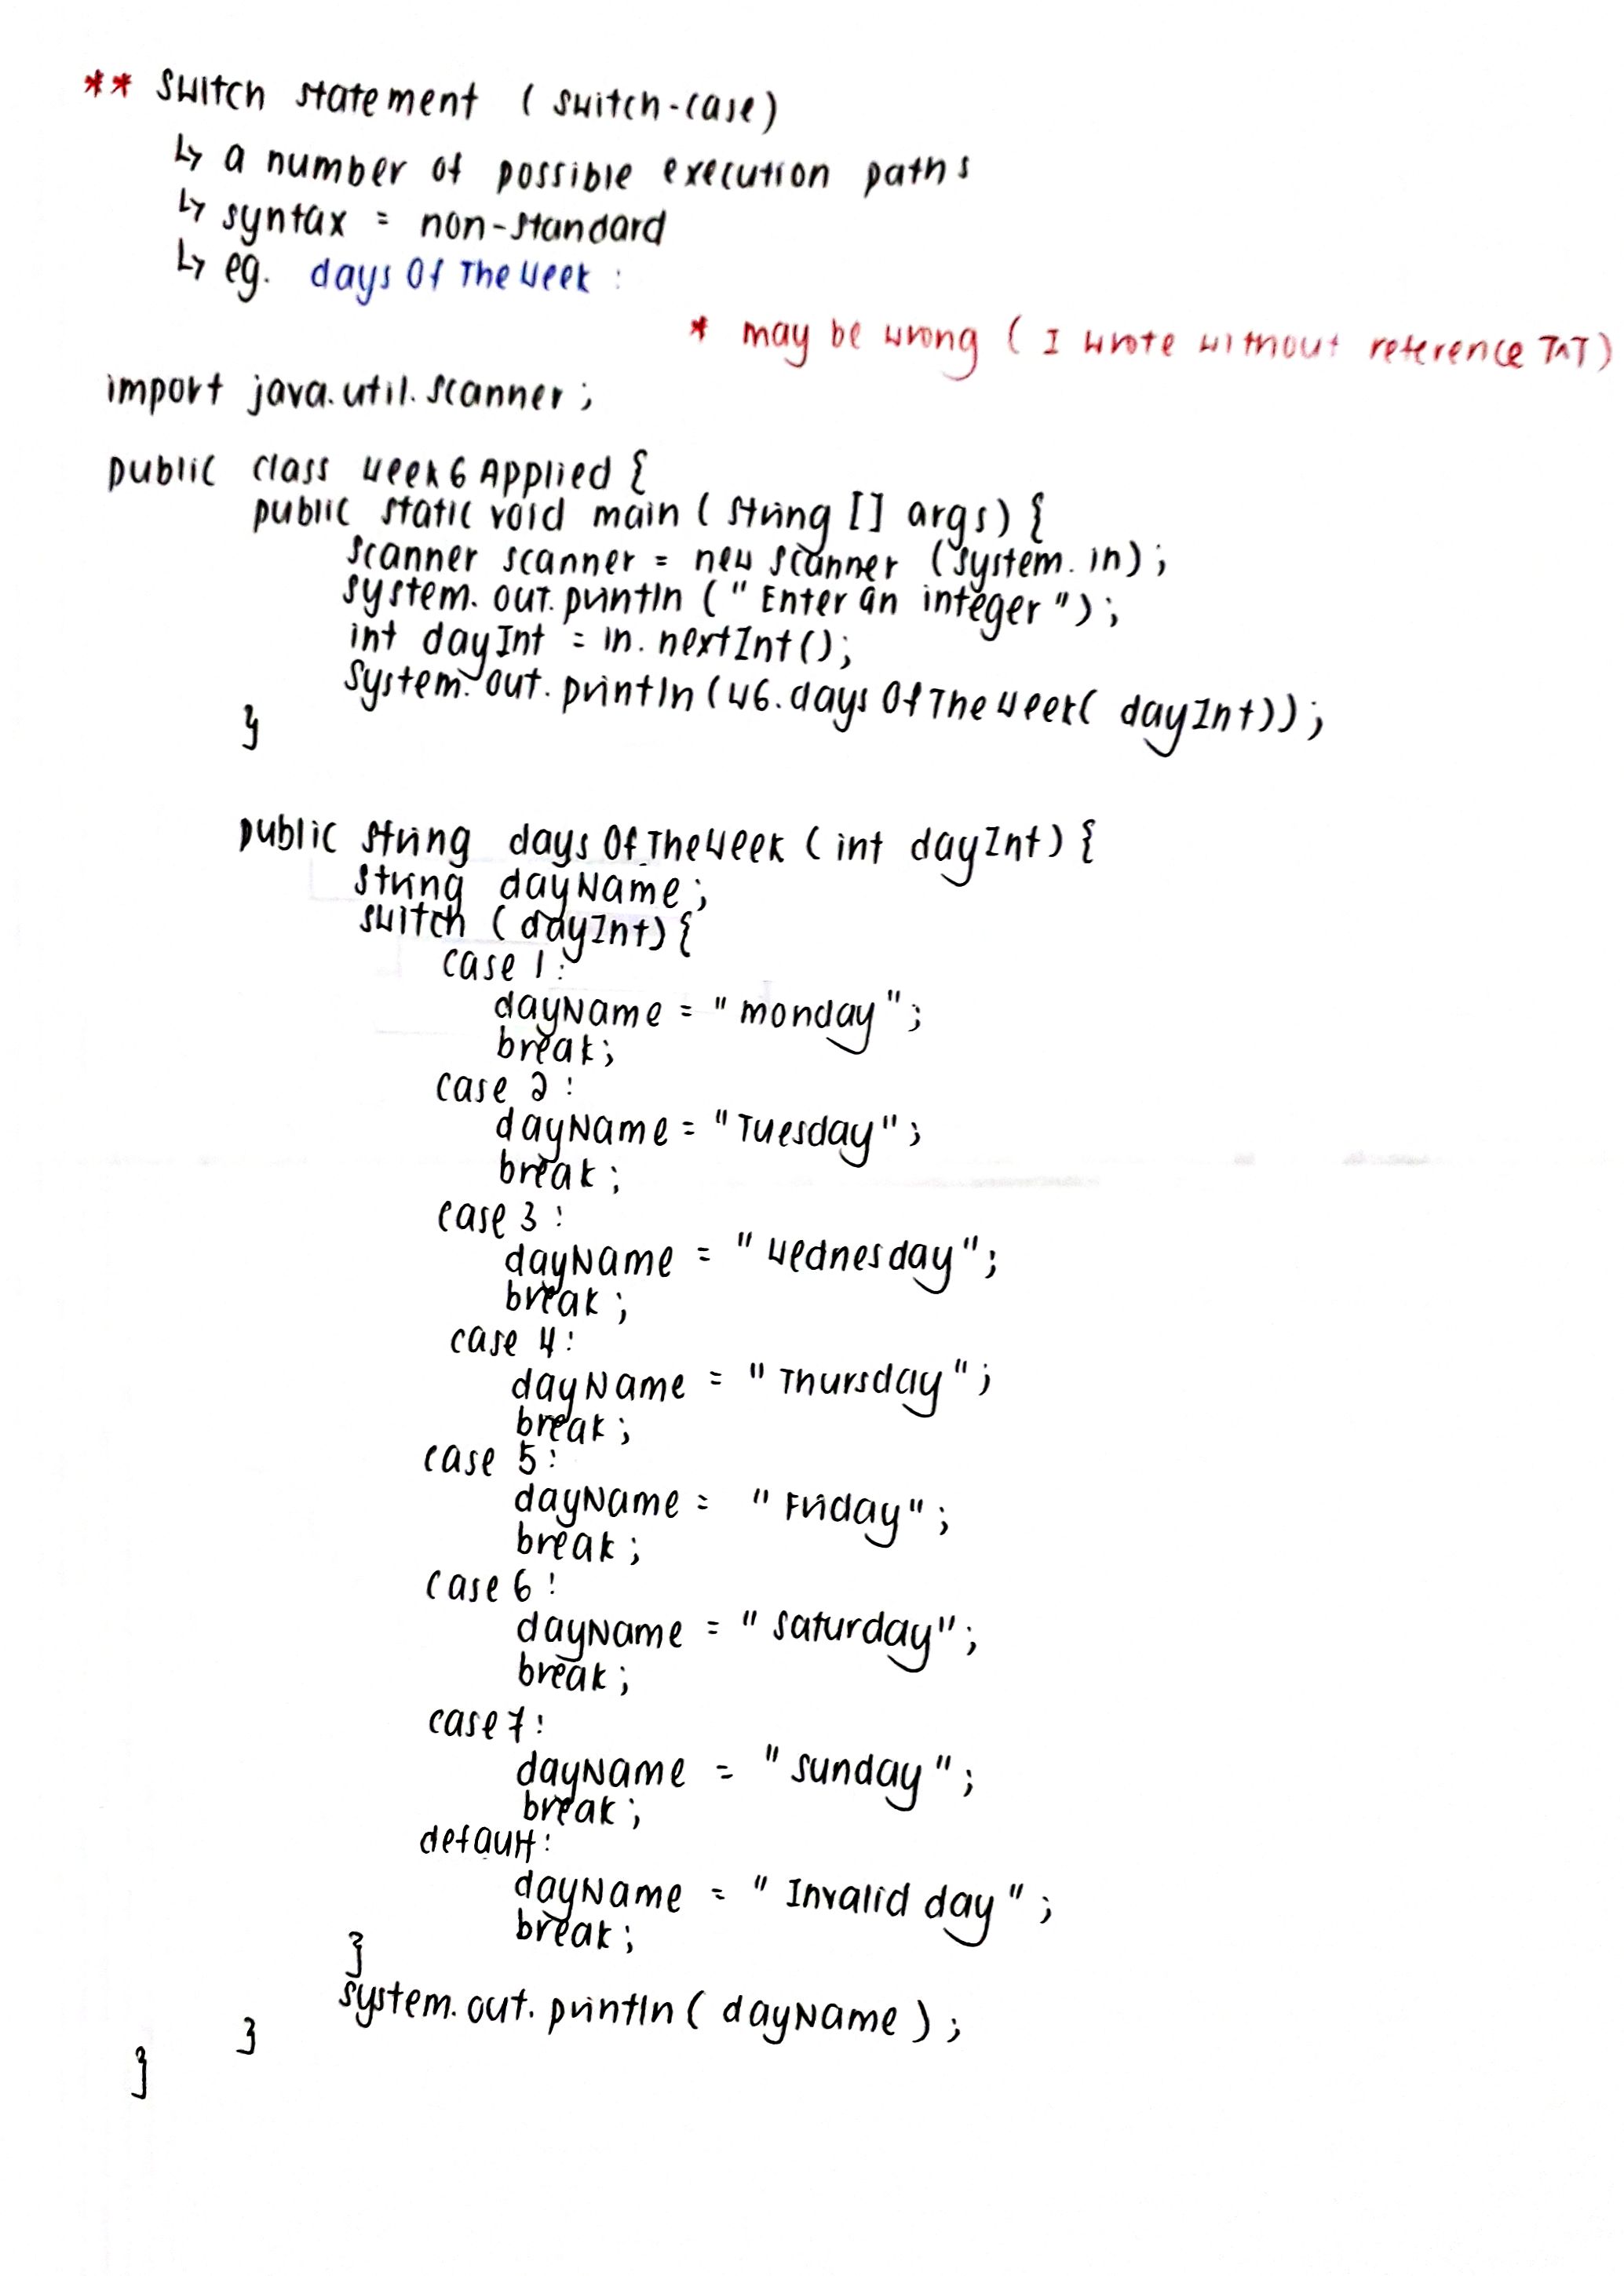 ** Switch statement (switch-case)
↳ a number of possible execution paths
↳ syntax = non-standard
↳ eg. daysOfTheWeek :
* may be wrong ( I wrote without reference TAT)
import java.util.Scanner;
public class Week6Applied {
public static void main (String [] args) {
Scanner scanner = new Scanner (System.in);
System.out.println (" Enter an integer ");
int dayInt = in.nextInt();
System.out.println (W6.daysOfTheWeek( dayInt));
}
public String daysOfTheWeek ( int dayInt) {
String dayName;
switch (dayInt) {
case 1:
dayName = " Monday ";
break;
case 2 :
dayName = " Tuesday ";
break;
case 3 :
dayName = " Wednesday ";
break;
case 4:
dayName = " Thursday ";
break;
case 5:
dayName = " Friday ";
break;
case 6 :
dayName = " Saturday";
break;
case 7:
dayName = " Sunday ";
break;
default:
dayName = " Invalid day ";
break;
}
System.out.println ( dayName );
}
}